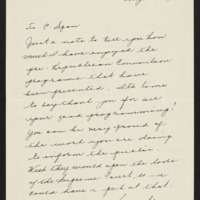 To C-Span
Just a note to tell you how
much I have enjoyed the
pre-Republican Convention
programs that have
been presented. I'd like
to say thank you for all
your good programming!
You can be very proud of
the work you are doing
to inform the public.
Wish they would open the doors
of the Supreme Court, so we
could have a peek at that.